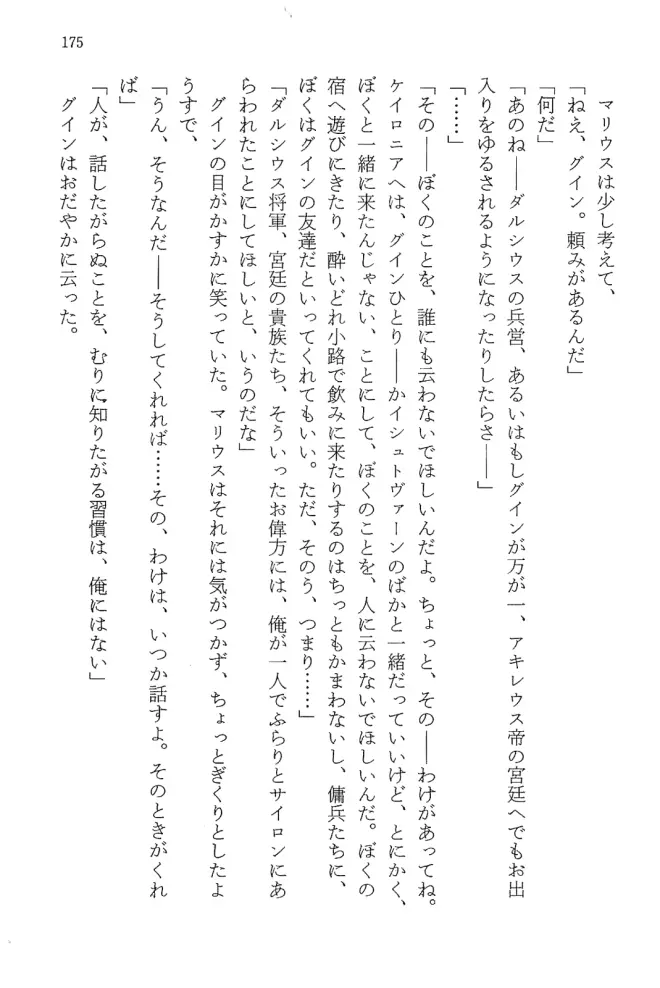 175
マリウスは少し考えて、
「ねえ、グイン。頼みがあるんだ」
「何だ」
「あのね――ダルシウスの兵営、あるいはもしグインが万が一、アキレウス帝の宮廷へでもお出
入りをゆるされるようになったりしたらさ――」
「……」
「その――ぼくのことを、誰にも云わないでほしいんだよ。ちょっと、その――わけがあってね。
ケイロニアへは、グインひとり――かイシュトヴァーンのばかと一緒だっていいけど、とにかく、
ぼくと一緒に来たんじゃない、ことにして、ぼくのことを、人に云わないでほしいんだ。ぼくの
宿へ遊びにきたり、酔いどれ小路で飲みに来たりするのはちっともかまわないし、傭兵たちに、
ぼくはグインの友達だといってくれてもいい。ただ、そのう、つまり……」
「ダルシウス将軍、宮廷の貴族たち、そういったお偉方には、俺が一人でふらりとサイロンにあ
らわれたことにしてほしいと、いうのだな」
グインの目がかすかに笑っていた。マリウスはそれには気がつかず、ちょっとぎくりとしたよ
うすで、
「うん、そうなんだ――そうしてくれれば……その、わけは、いつか話すよ。そのときがくれ
ば」
「人が、話したがらぬことを、むりに知りたがる習慣は、俺にはない」
グインはおだやかに云った。